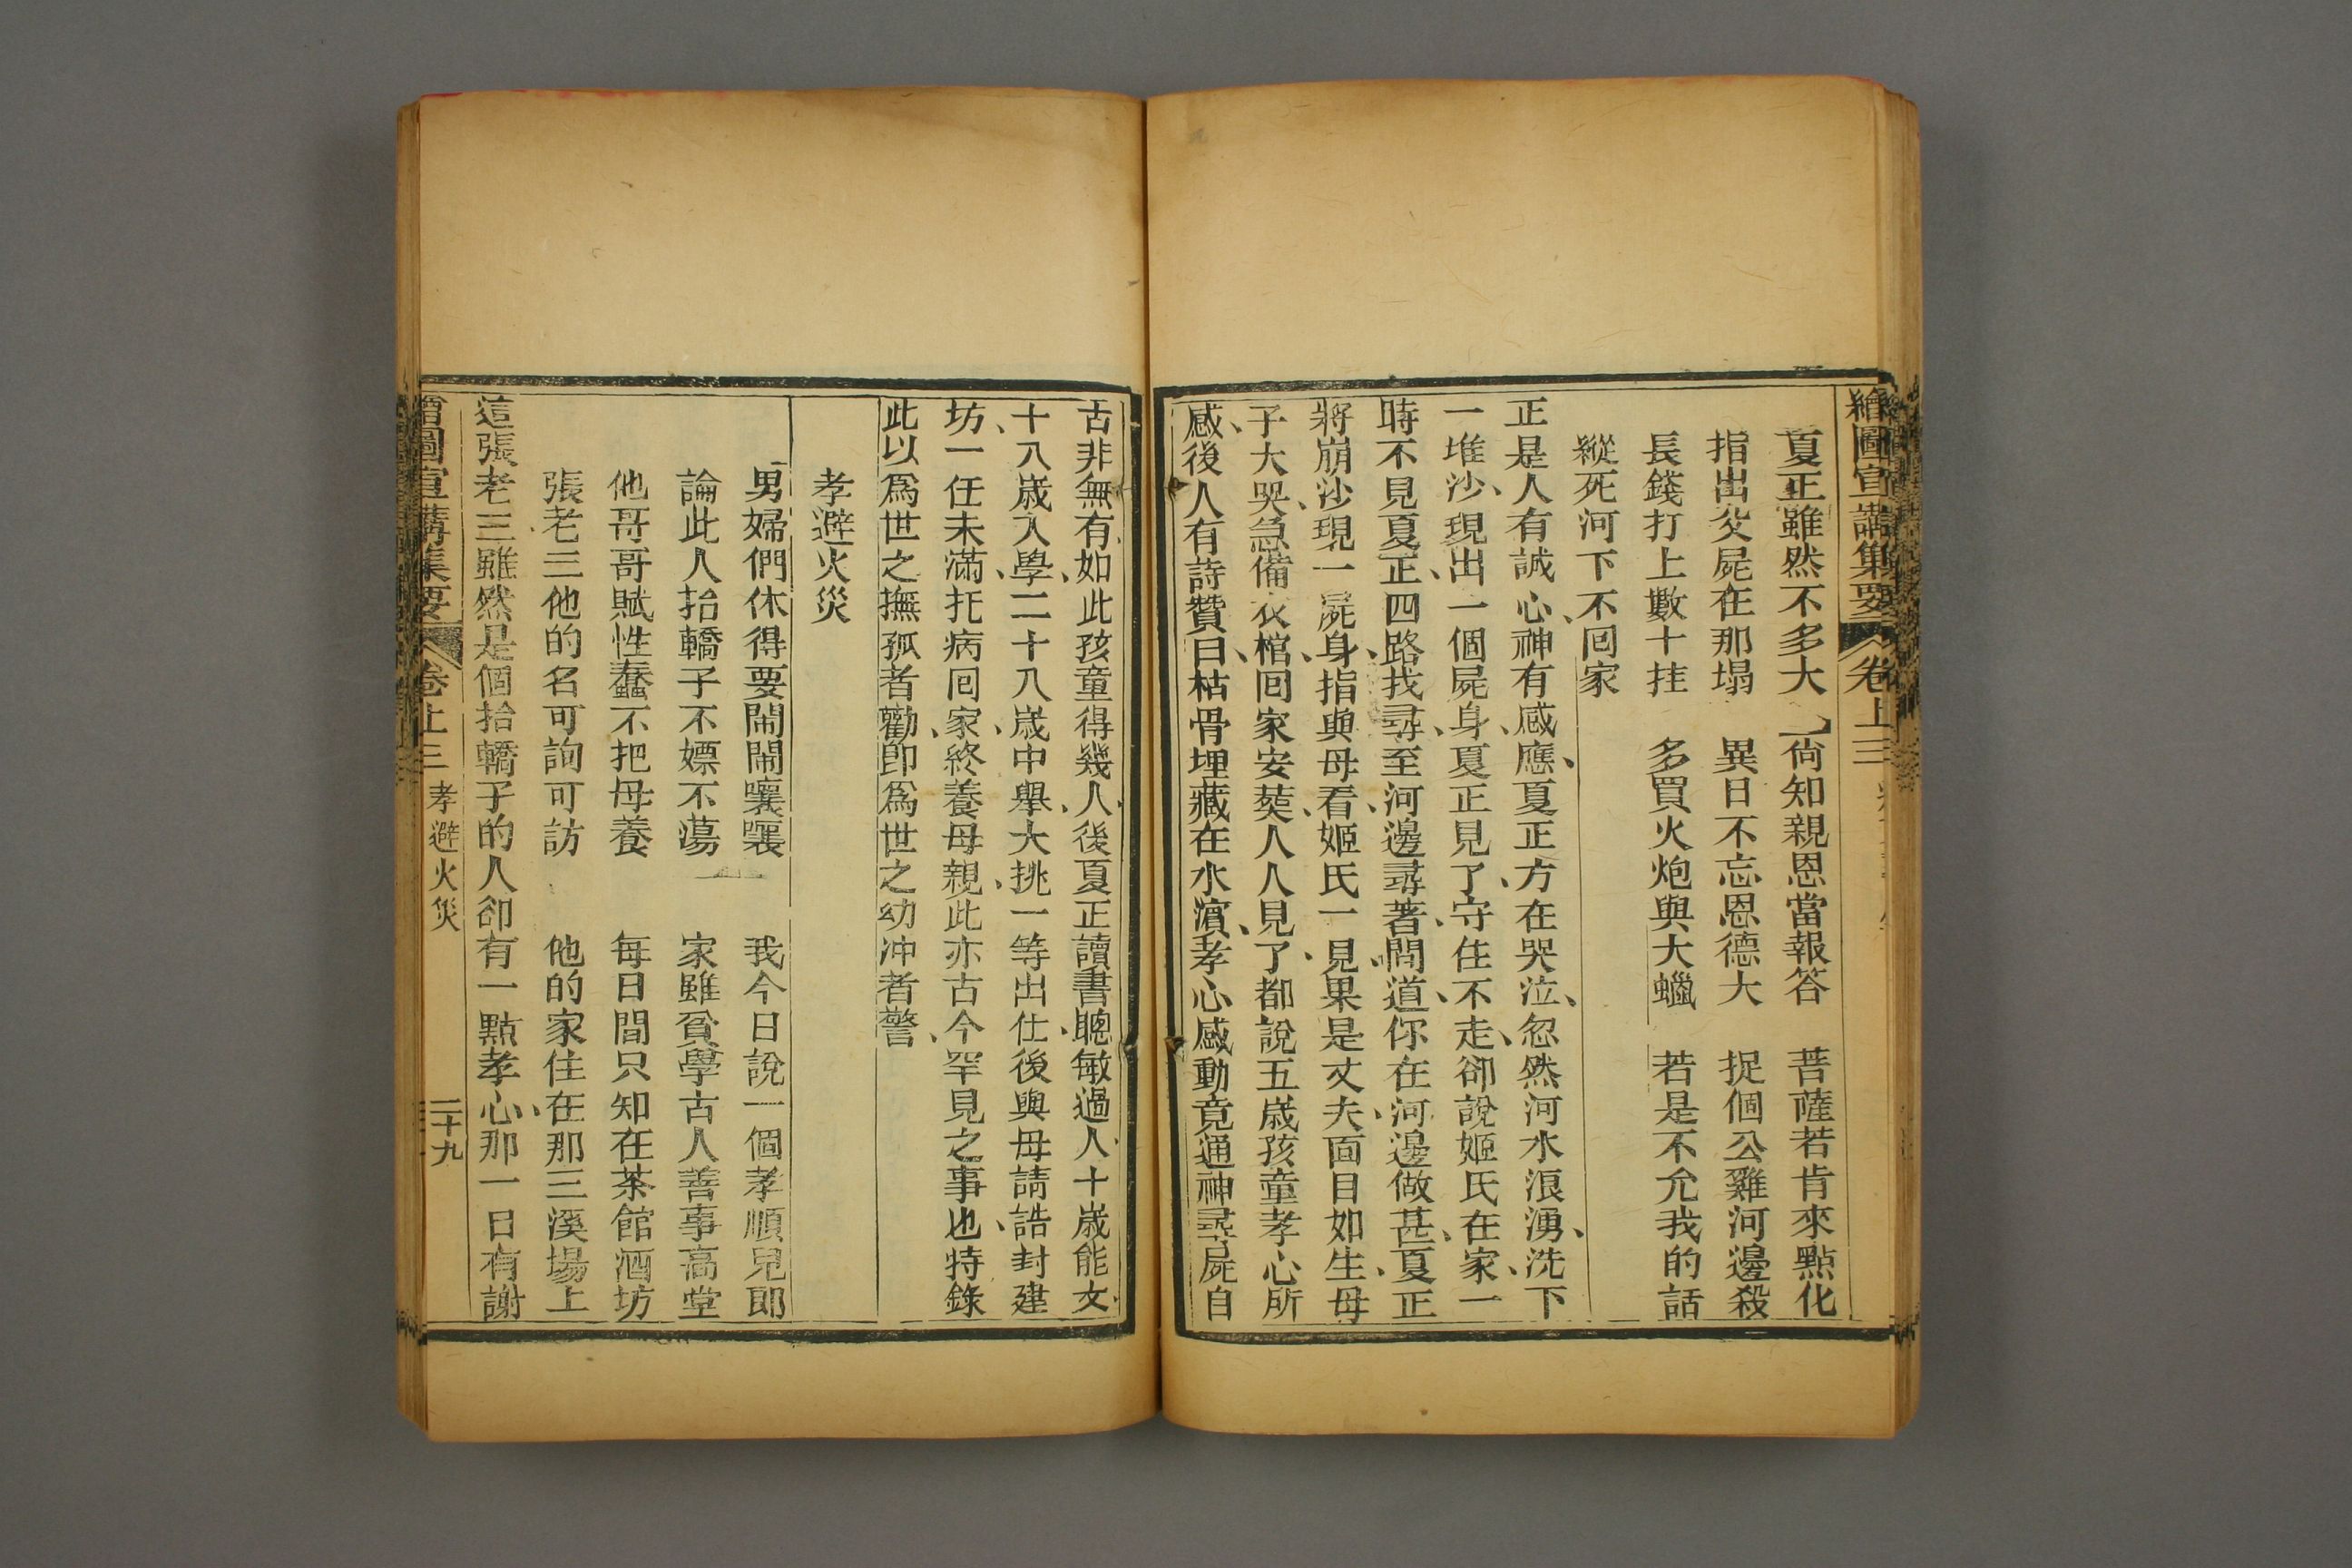 繪圖宣講集要 卷上三
夏正雖然不多大 尙知親恩當報答 菩薩若肯來點化
指出父屍在那塌 異日不忘恩德大 捉個公雞河邊殺
長錢打上數十挂 多買火炮與大蠟 若是不允我的話
縱死河下不囘家
正是人有誠心、神有感應、夏正方在哭泣、忽然河水浪湧、洗下
一堆沙、現出一個屍身、夏正見了、守住不走、卻說姬氏在家、一
時不見夏正、四路找尋、至河邊尋著、問道、你在河邊做甚、夏正
將崩沙現一屍身、指與母看、姬氏一見、果是丈夫、面目如生、母
子大哭、急備衣棺、囘家安葬、人人見了、都說五歲孩童孝心所
感、後人有詩贊曰、枯骨埋藏在水濵、孝心感動竟通神尋屍自
古非無有、如此孩童得幾人、後夏正讀書、聰敏過人、十歲能文、
十八歲入學、二十八歲中舉、大挑一等出仕後與母請誥封建
坊、一任未滿、托病囘家、終養母親、此亦古今罕見之事也、特錄
此以爲世之撫孤者勸、卽爲世之幼冲者警、
孝避火災
男婦們休得要鬧鬧嚷嚷 我今日說一個孝順兒郎
論此人抬轎子不嫖不蕩 家雖貧學古人善事高堂
他哥哥賦性蠢不把母養 每日間只知在茶館酒坊
張老三他的名可詢可訪 他的家住在那三溪場上
這張老三雖然是個抬轎子的人卻有一點孝心、那一日有謝
繪圖宣講集要 卷上三 孝避火災 二十九